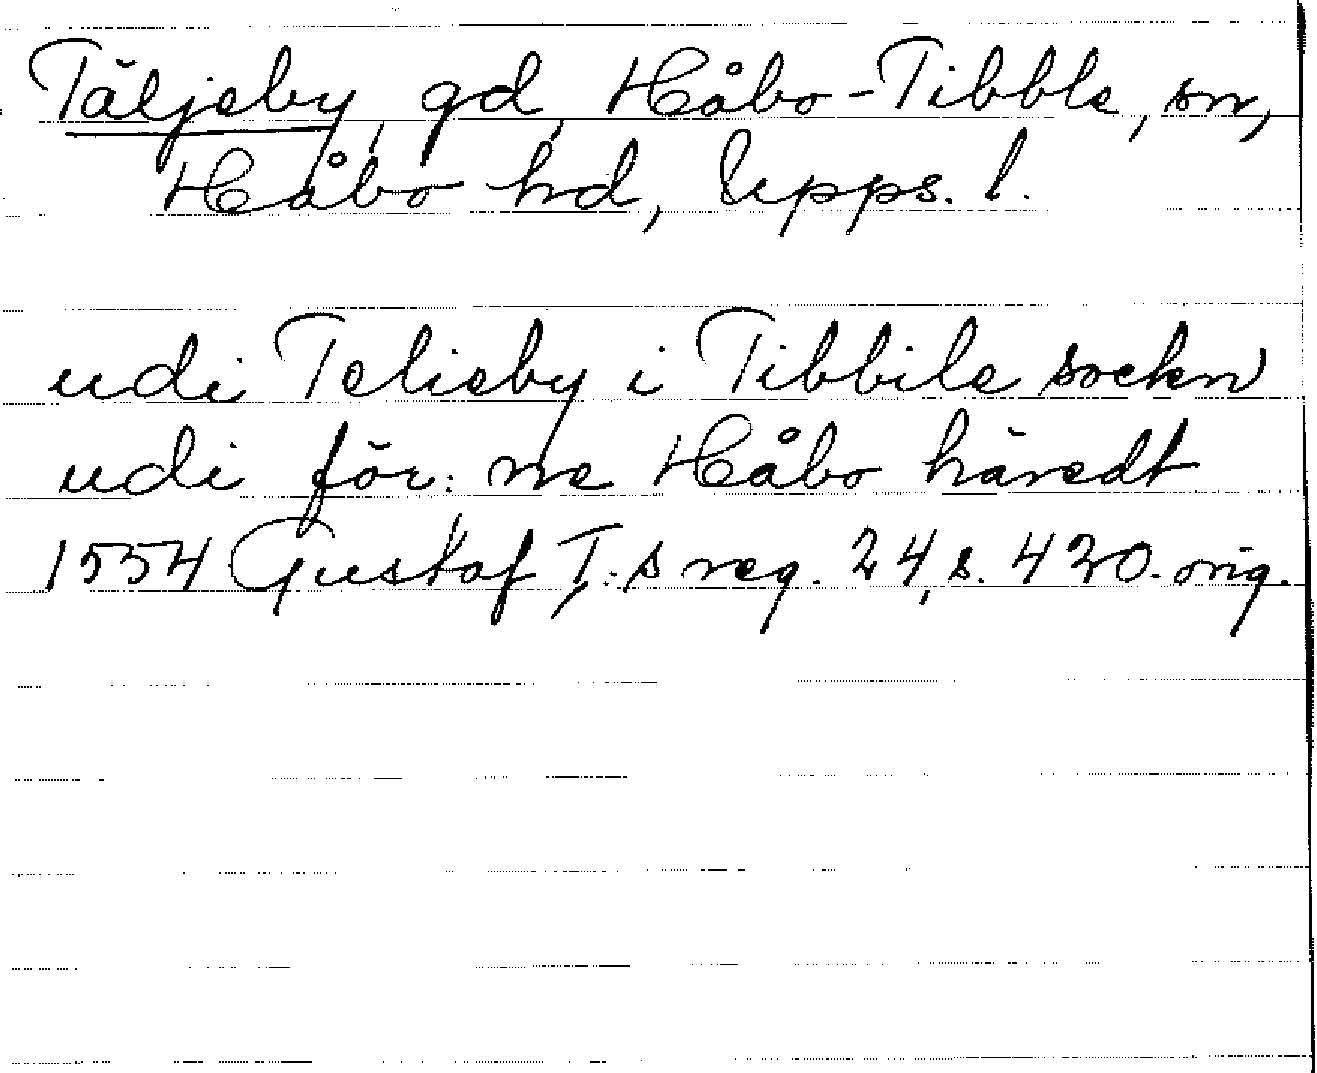 Täljeby, gd, Håbo-Tibble, sn,
Håbo hd, Upps. l.
udi Telieby i Tibbile sockn
udi för:ne Håbo häredt
1554 Gustaf I:s reg. 24, s. 420. orig.